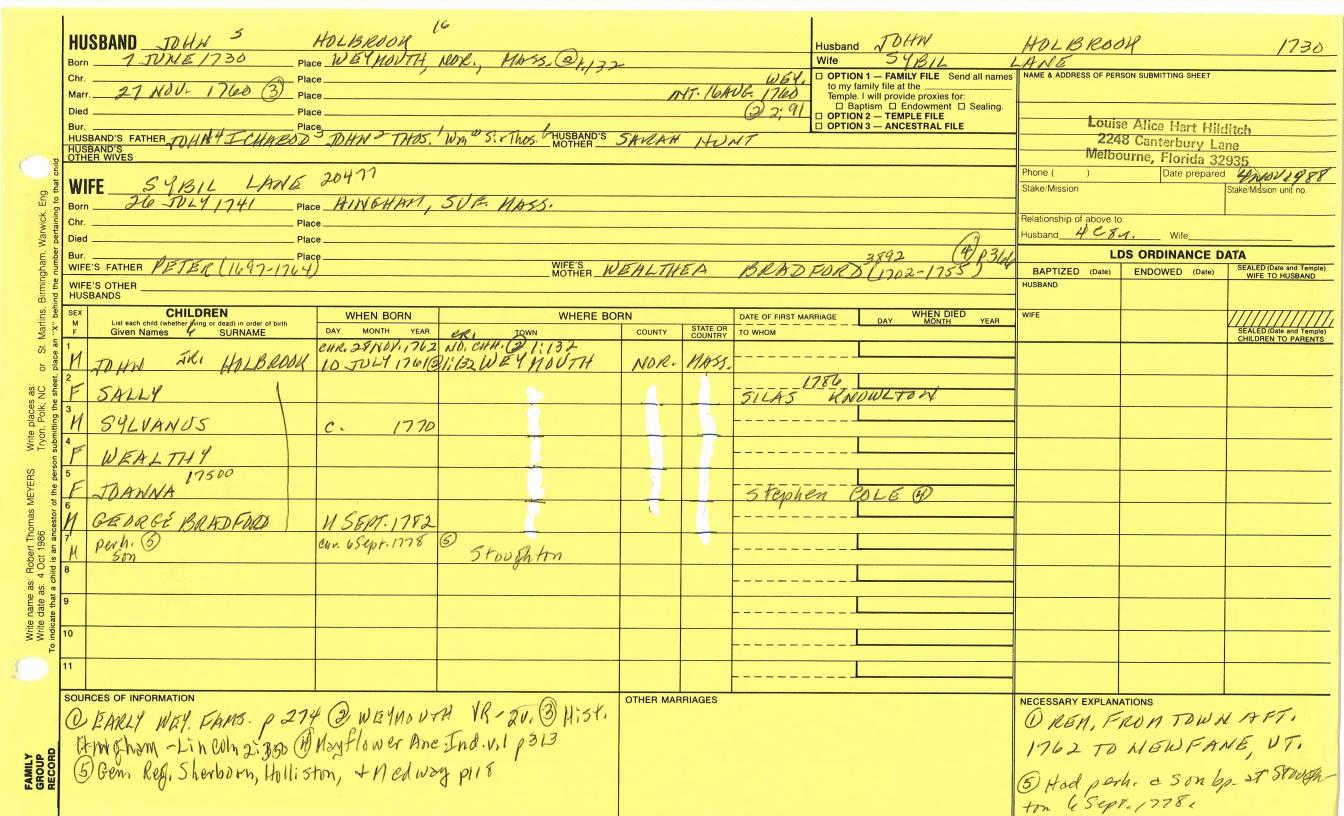 HUSBAND JOHN 5 HOLBROOK 16
Born 7 JUNE 1730 Place WEYMOUTH, NOR., MASS. ② 1;132
Chr. Place WEY.
Marr. 27 NOV. 1760 ③ Place INT. 16 AUG 1760
Died Place ② 2; 91
Bur. Place
HUSBAND'S FATHER JOHN 4 ICHABOD 3 JOHN 2 THOS. 1 Wm Sir Thos. HUSBAND'S MOTHER SARAH HUNT
HUSBAND'S OTHER WIVES
WIFE SYBIL LANE 20477
Born 26 JULY 1741 Place HINGHAM, SUF. MASS.
Chr. Place
Died Place
Bur. Place
WIFE'S FATHER PETER (1697-1764) WIFE'S MOTHER WEALTHEA BRADFORD 3892 (1702-1755) ④
WIFE'S OTHER HUSBANDS
Husband JOHN HOLBROOK 1730
Wife SYBIL LANE
☐ OPTION 1 — FAMILY FILE Send all names
to my family file at the
Temple. I will provide proxies for:
☐ Baptism ☐ Endowment ☐ Sealing.
☐ OPTION 2 — TEMPLE FILE
☐ OPTION 3 — ANCESTRAL FILE
NAME & ADDRESS OF PERSON SUBMITTING SHEET
Louise Alice Hart Hilditch
2248 Canterbury Lane
Melbourne, Florida 32935
Phone ( ) Date prepared 4 NOV 1988
Stake/Mission Stake/Mission unit no.
Relationship of above to:
Husband Wife
LDS ORDINANCE DATA
BAPTIZED (Date) ENDOWED (Date) SEALED (Date and Temple) WIFE TO HUSBAND
HUSBAND
WIFE
SEALED (Date and Temple) CHILDREN TO PARENTS
SEX M F
CHILDREN
List each child (whether living or dead) in order of birth
Given Names SURNAME
WHEN BORN
DAY MONTH YEAR
WHERE BORN
TOWN COUNTY STATE OR COUNTRY
DATE OF FIRST MARRIAGE
TO WHOM
WHEN DIED
DAY MONTH YEAR
1 M JOHN JR. HOLBROOK CHR. 28 NOV. 1762 NO. CHH. ② 1;132
10 JULY 1761 ② 1;132 WEYMOUTH NOR. MASS.
2 F SALLY 1786 SILAS KNOWLTON
3 M SYLVANUS c. 1770
4 F WEALTHY
5 F JOANNA 17500 Stephen COLE ④
6 M GEORGE BRADFORD 11 SEPT. 1782
7 M perh. ⑤ Son chr. 6 Sept. 1778 ⑤ Stoughton
8
9
10
11
SOURCES OF INFORMATION
① EARLY WEY. FAMS. p 274 ② WEYMOUTH VR-2v. ③ Hist.
Hingham - Lincoln ④ Mayflower Anc. Ind. v.1 p313
⑤ Gen. Reg. Sherborn, Holliston, + Medway p118
OTHER MARRIAGES
NECESSARY EXPLANATIONS
① REM. FROM TOWN AFT.
1762 TO NEWFANE, VT.
⑤ Had perh. a son bp. at Stough-
ton 6 Sept. 1778.
Write name as: Robert Thomas MEYERS Write places as: Tryon, Polk, NC or St. Martins, Birmingham, Warwick, Eng.
Write date as: 4 Oct 1986
To indicate that a child is an ancestor of the person submitting the sheet, place an "X" behind the number pertaining to that child
FAMILY GROUP RECORD